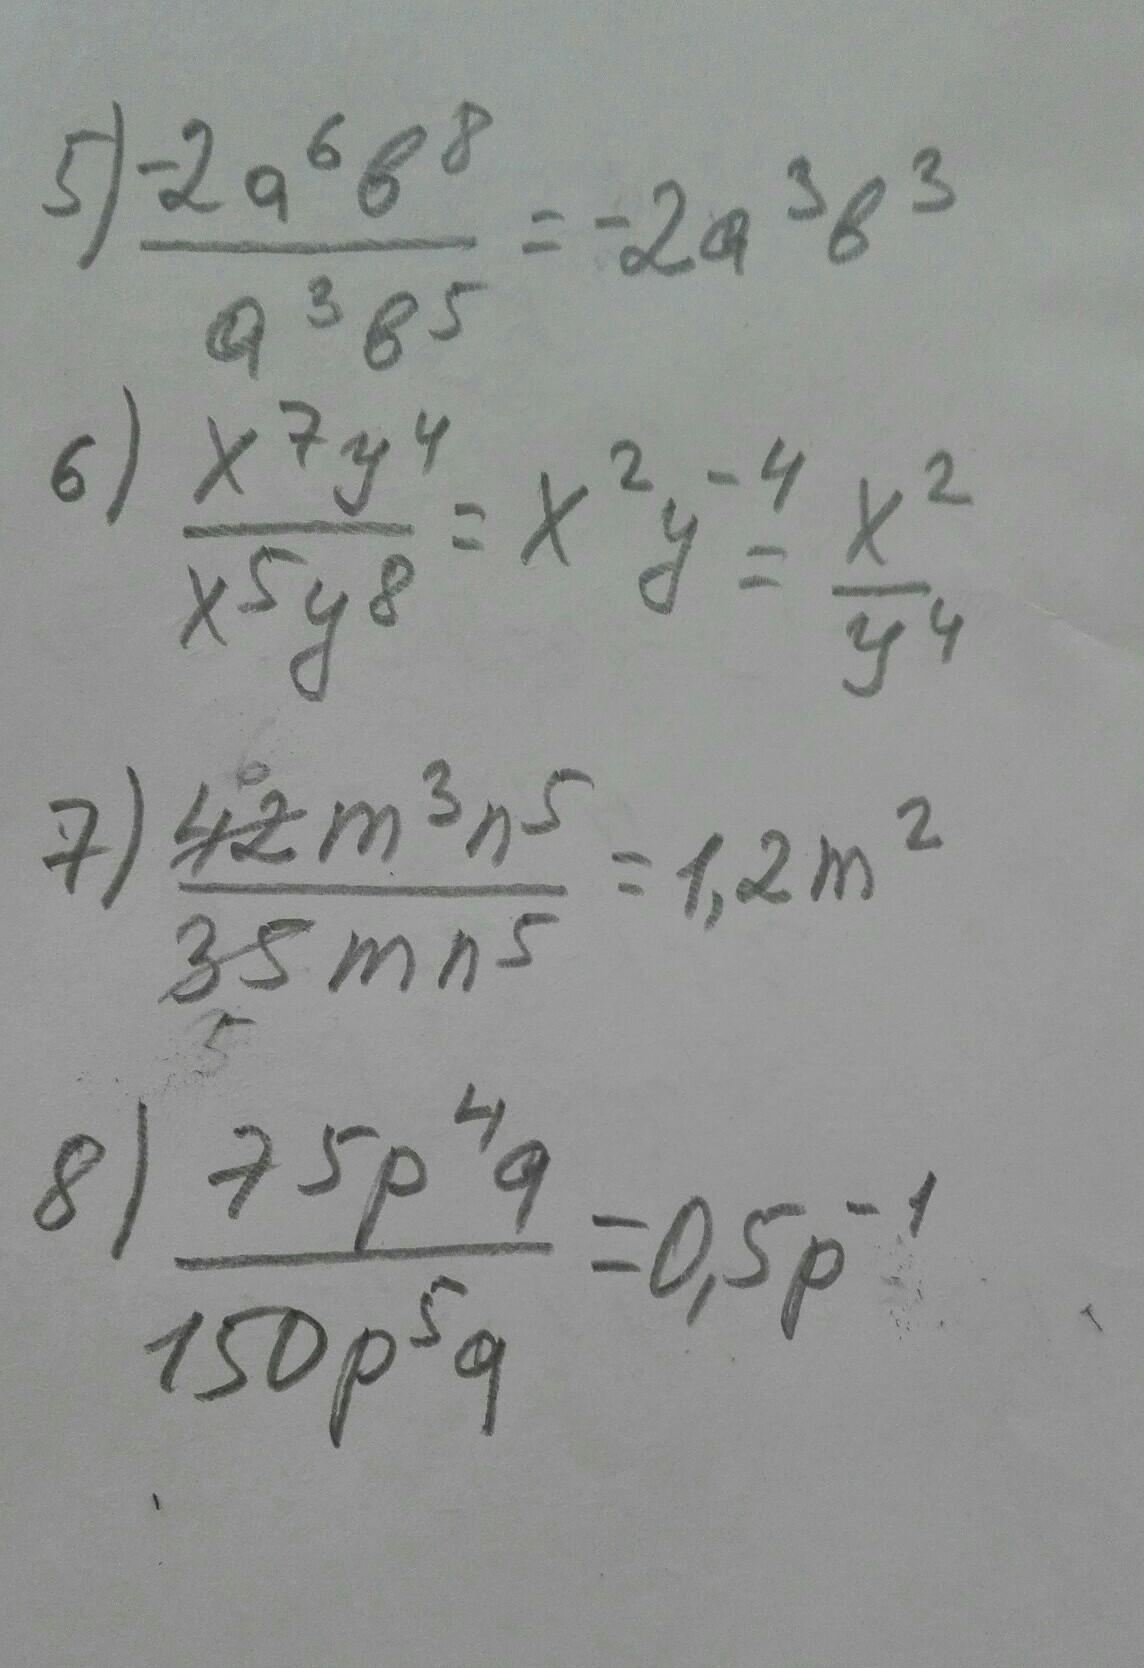 5) -2a⁶b⁸ / a³b⁵ = -2a³b³
6) x⁷y⁴ / x⁵y⁸ = x²y⁻⁴ = x² / y⁴
6
7) 42m³n⁵ / 35mn⁵ = 1,2m²
5
8) 75p⁴q / 150p⁵q = 0,5p⁻¹